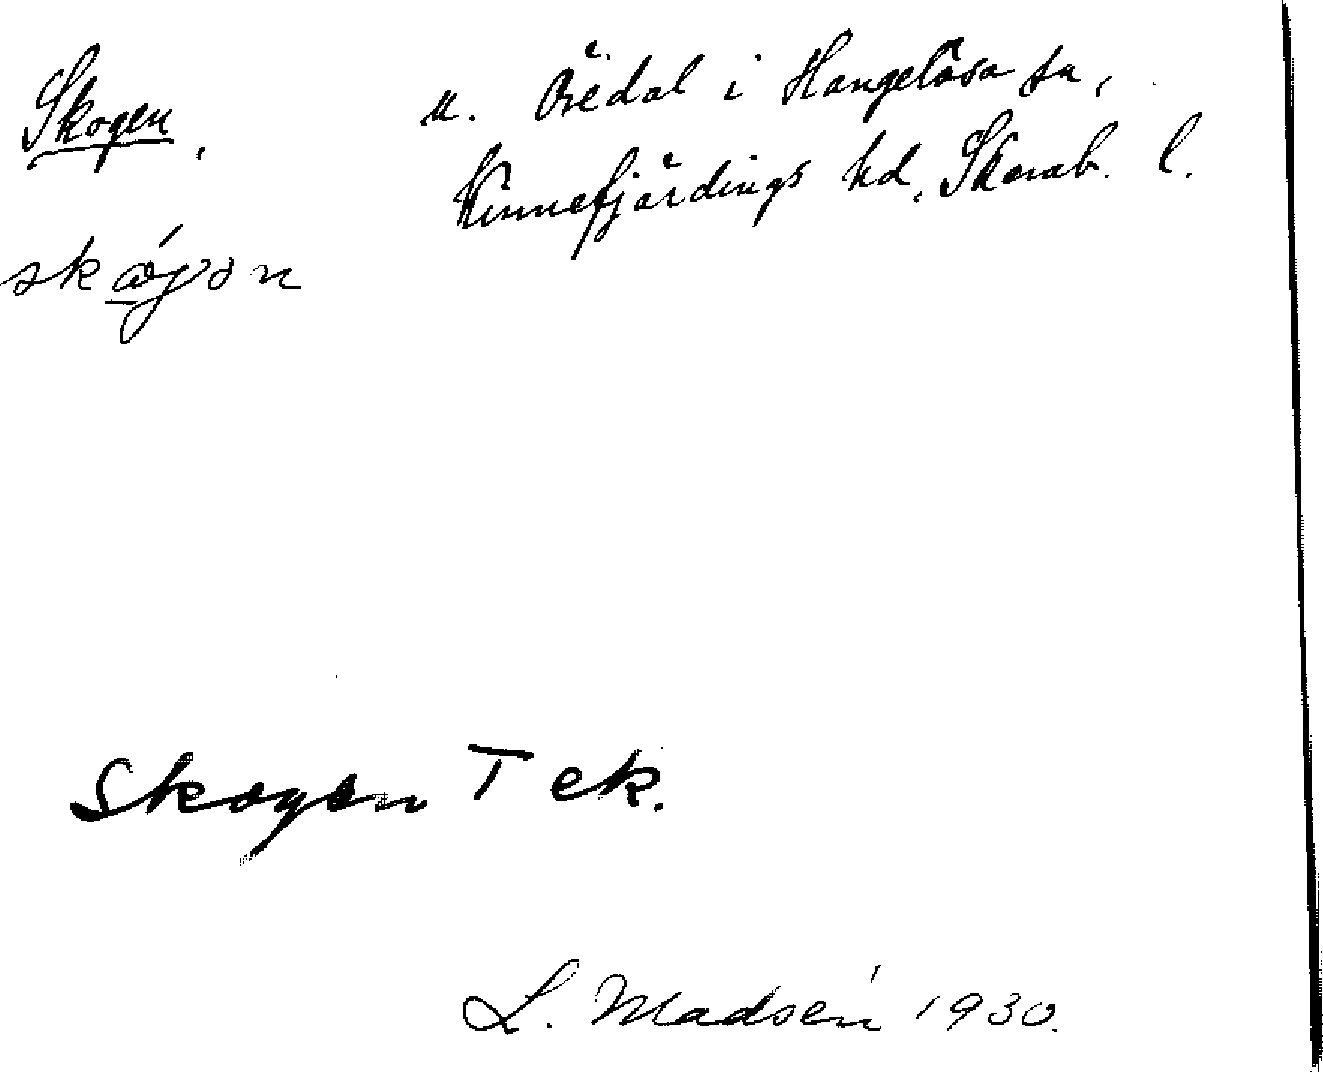 Skogen,
u. Öredal i Hangelösa sn,
Kinnefjärdings hd, Skarab. l.
skógən
Skogen T ek.
L. Madsén 1930.